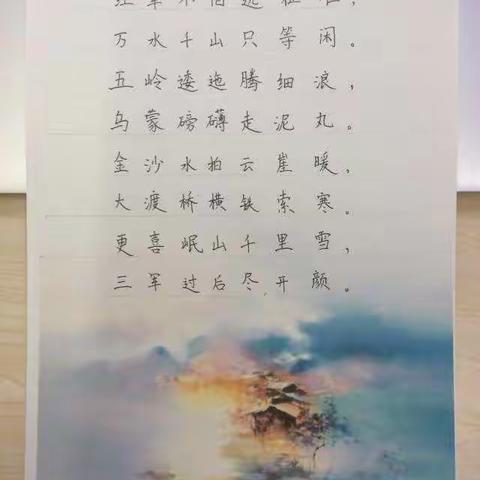 红军不怕远征难，
万水千山只等闲。
五岭逶迤腾细浪，
乌蒙磅礴走泥丸。
金沙水拍云崖暖，
大渡桥横铁索寒。
更喜岷山千里雪，
三军过后尽开颜。